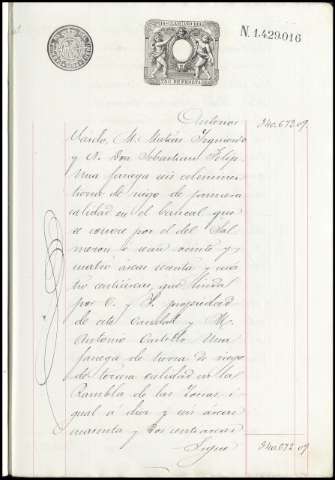 N. 1.429.016
Antonio 340.672.09
Varelo, M. Matías Izquierdo
y N. Don Sebastian Felip
Una fanega seis celemines
tierra de riego de primera
calidad en el bancal que
se conoce por el del Sal
meron o sean veinte y
cuatro áreas, y cua
tro centiáreas, que linda
por O. y P. propiedad
de este caudal y M.
Antonio Castillo. Una
fanega de tierra de riego
de tercera calidad en la
Rambla de las i
gual á diez y seis áreas
y dos centiáreas
Sigue 340.672.09